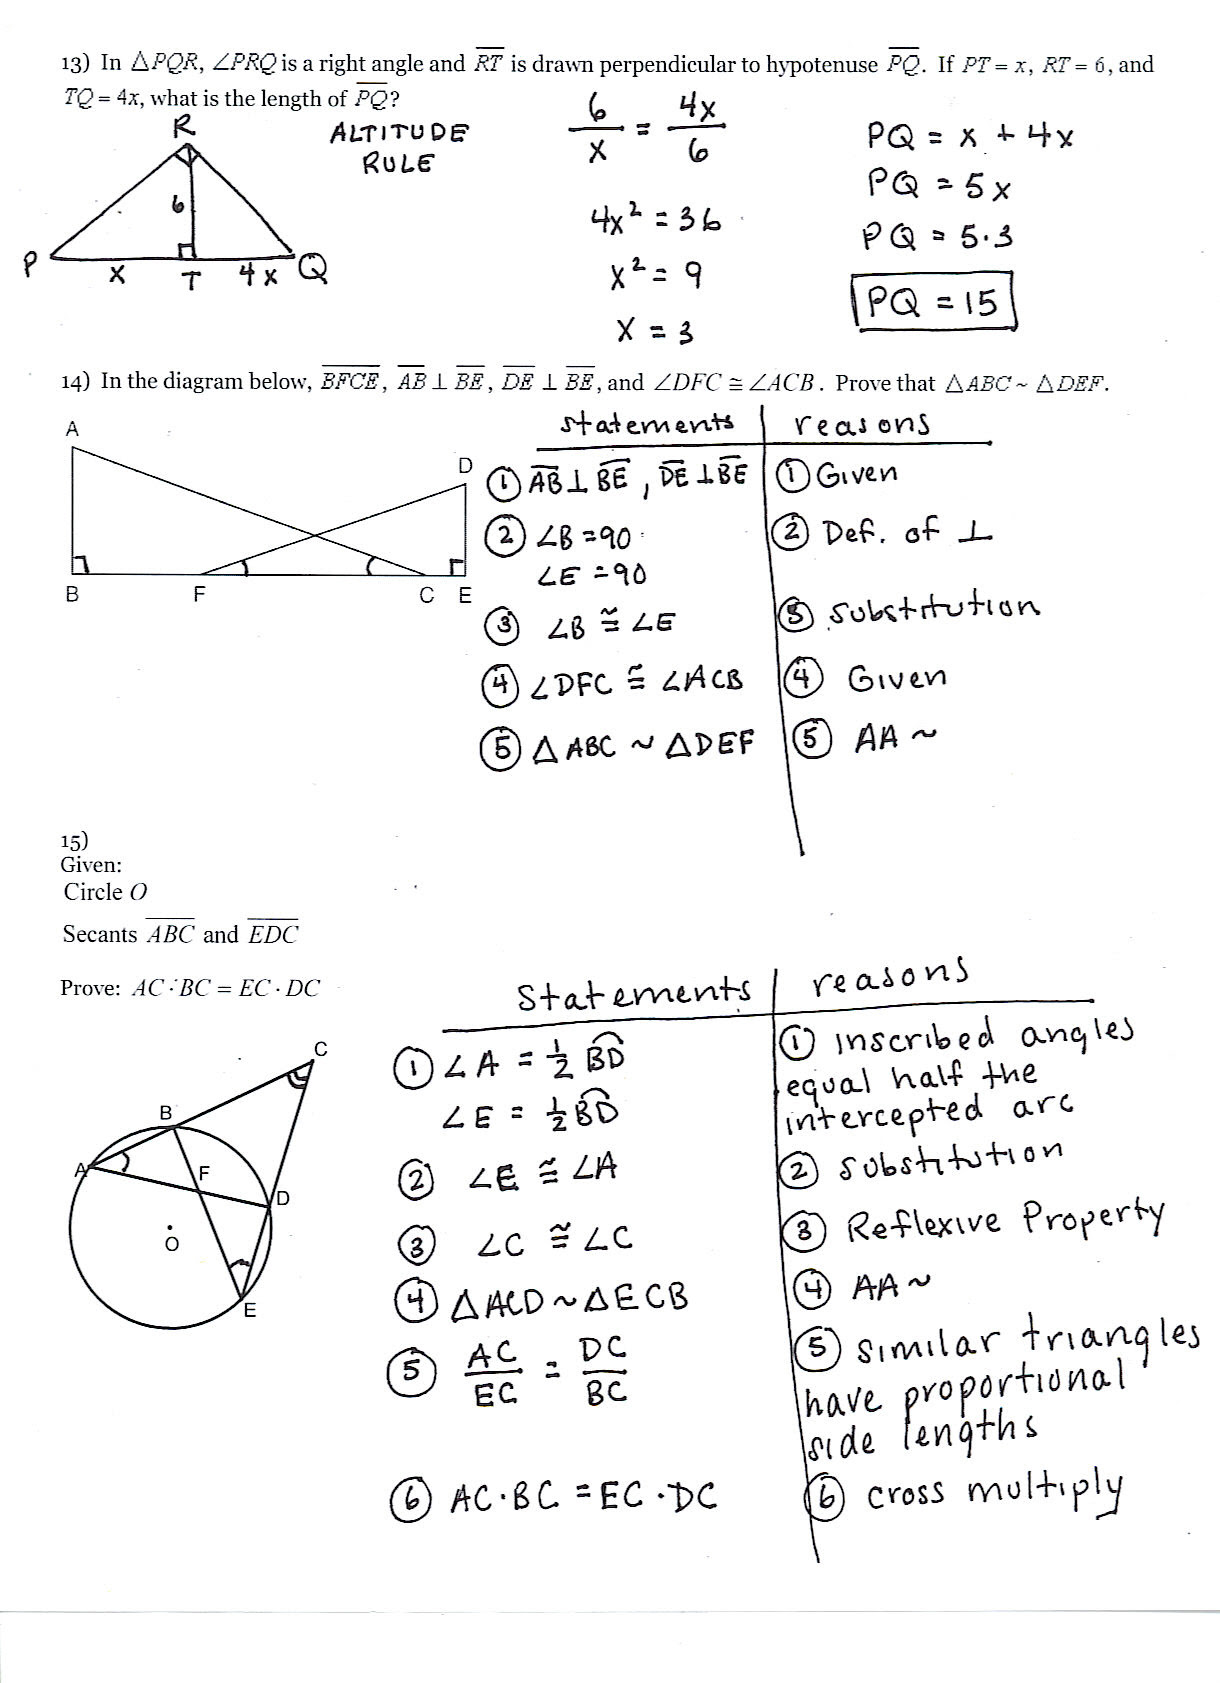 13) In △PQR, ∠PRQ is a right angle and R̅T̅ is drawn perpendicular to hypotenuse P̅Q̅. If PT = x, RT = 6, and
TQ = 4x, what is the length of P̅Q̅?
R
6
P x T 4x Q
ALTITUDE
RULE
6/x = 4x/6
4x² = 36
x² = 9
x = 3
PQ = x + 4x
PQ = 5x
PQ = 5·3
PQ = 15
14) In the diagram below, B̅F̅C̅E̅, A̅B̅ ⊥ B̅E̅, D̅E̅ ⊥ B̅E̅, and ∠DFC ≅ ∠ACB. Prove that △ABC ~ △DEF.
A
D
B F C E
statements | reasons
① A̅B̅ ⊥ B̅E̅, D̅E̅ ⊥ B̅E̅ ① Given
② ∠B = 90 ② Def. of ⊥
∠E = 90
③ ∠B ≅ ∠E ③ substitution
④ ∠DFC ≅ ∠ACB ④ Given
⑤ △ABC ~ △DEF ⑤ AA ~
15)
Given:
Circle O
Secants A̅B̅C̅ and E̅D̅C̅
Prove: AC · BC = EC · DC
C
B
A
F
D
O
E
Statements | reasons
① ∠A = ½ B͡D ① inscribed angles
equal half the
∠E = ½ B͡D intercepted arc
② ∠E ≅ ∠A ② substitution
③ ∠C ≅ ∠C ③ Reflexive Property
④ △ACD ~ △ECB ④ AA ~
⑤ AC/EC = DC/BC ⑤ similar triangles
have proportional
side lengths
⑥ AC · BC = EC · DC ⑥ cross multiply